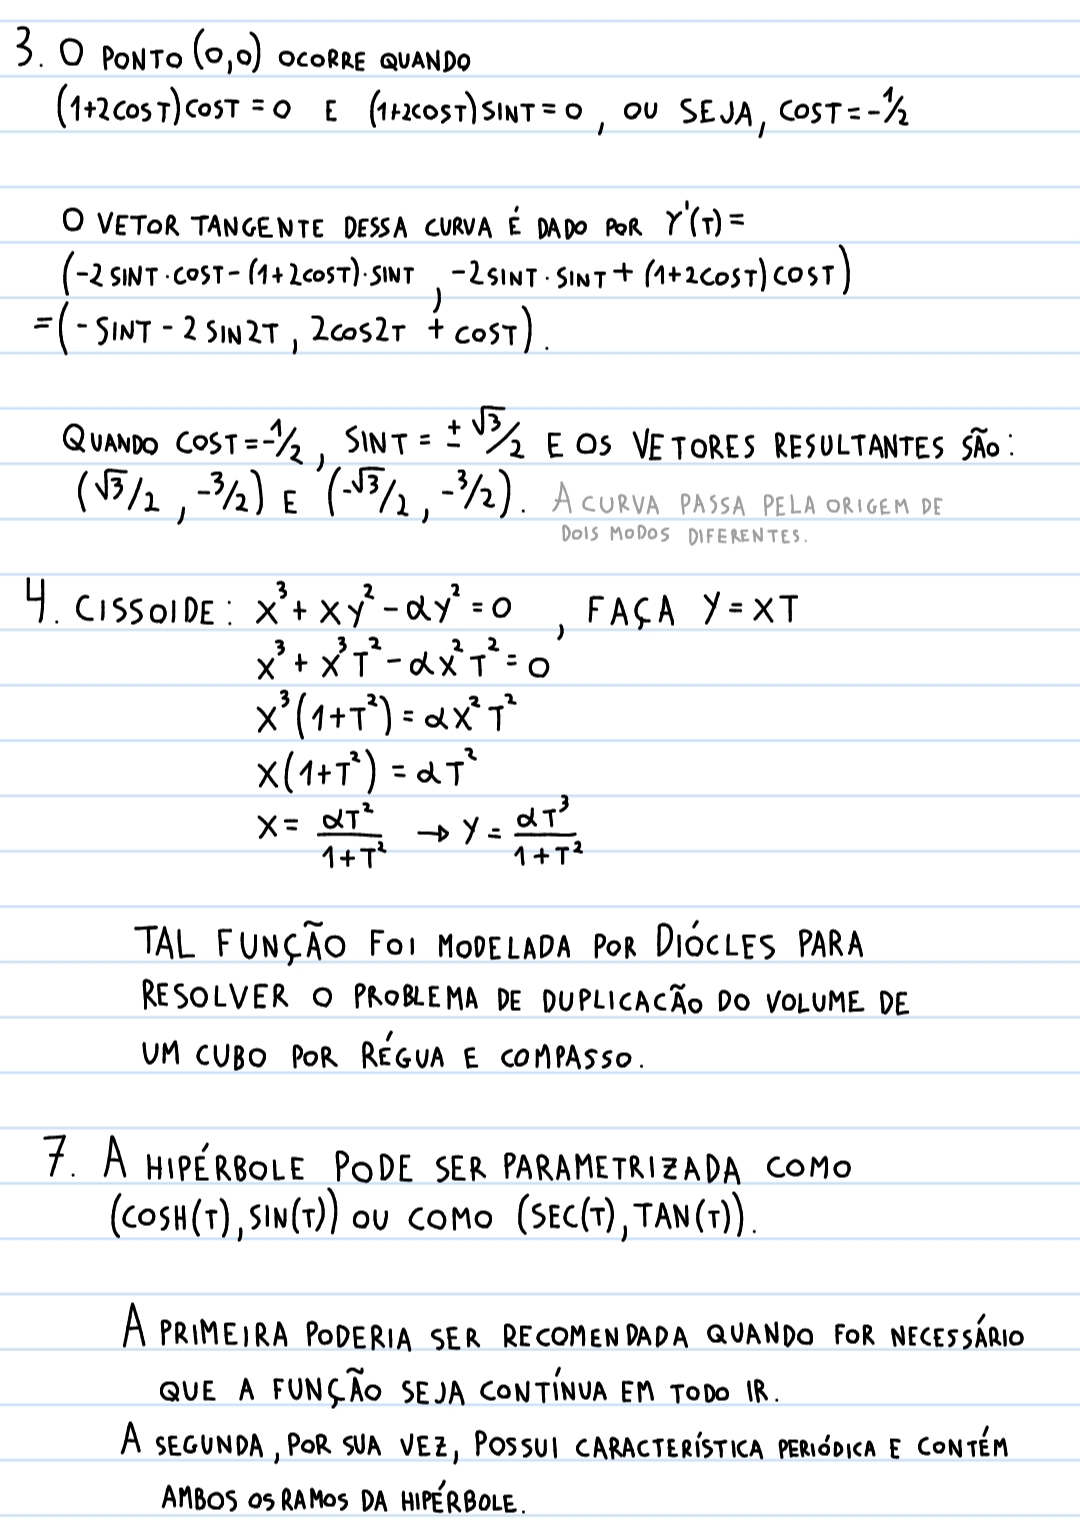 3. O PONTO (0,0) OCORRE QUANDO
(1+2COST)COST = 0 E (1+2COST)SINT = 0, OU SEJA, COST = -1/2
O VETOR TANGENTE DESSA CURVA É DADO POR γ'(T) =
(-2 SINT·COST - (1+2COST)·SINT, -2SINT·SINT + (1+2COST)COST)
= (-SINT - 2 SIN2T, 2COS2T + COST).
QUANDO COST = -1/2, SINT = ±√3/2 E OS VETORES RESULTANTES SÃO:
(√3/2, -3/2) E (-√3/2, -3/2). A CURVA PASSA PELA ORIGEM DE
DOIS MODOS DIFERENTES.
4. CISSOIDE: X³ + XY² - αY² = 0, FAÇA Y = XT
X³ + X³T² - αX²T² = 0
X³(1+T²) = αX²T²
X(1+T²) = αT²
X = αT²/(1+T²) → Y = αT³/(1+T²)
TAL FUNÇÃO FOI MODELADA POR DIÓCLES PARA
RESOLVER O PROBLEMA DE DUPLICACÃO DO VOLUME DE
UM CUBO POR RÉGUA E COMPASSO.
7. A HIPÉRBOLE PODE SER PARAMETRIZADA COMO
(COSH(T), SIN(T)) OU COMO (SEC(T), TAN(T)).
A PRIMEIRA PODERIA SER RECOMENDADA QUANDO FOR NECESSÁRIO
QUE A FUNÇÃO SEJA CONTÍNUA EM TODO IR.
A SEGUNDA, POR SUA VEZ, POSSUI CARACTERÍSTICA PERIÓDICA E CONTÉM
AMBOS OS RAMOS DA HIPÉRBOLE.